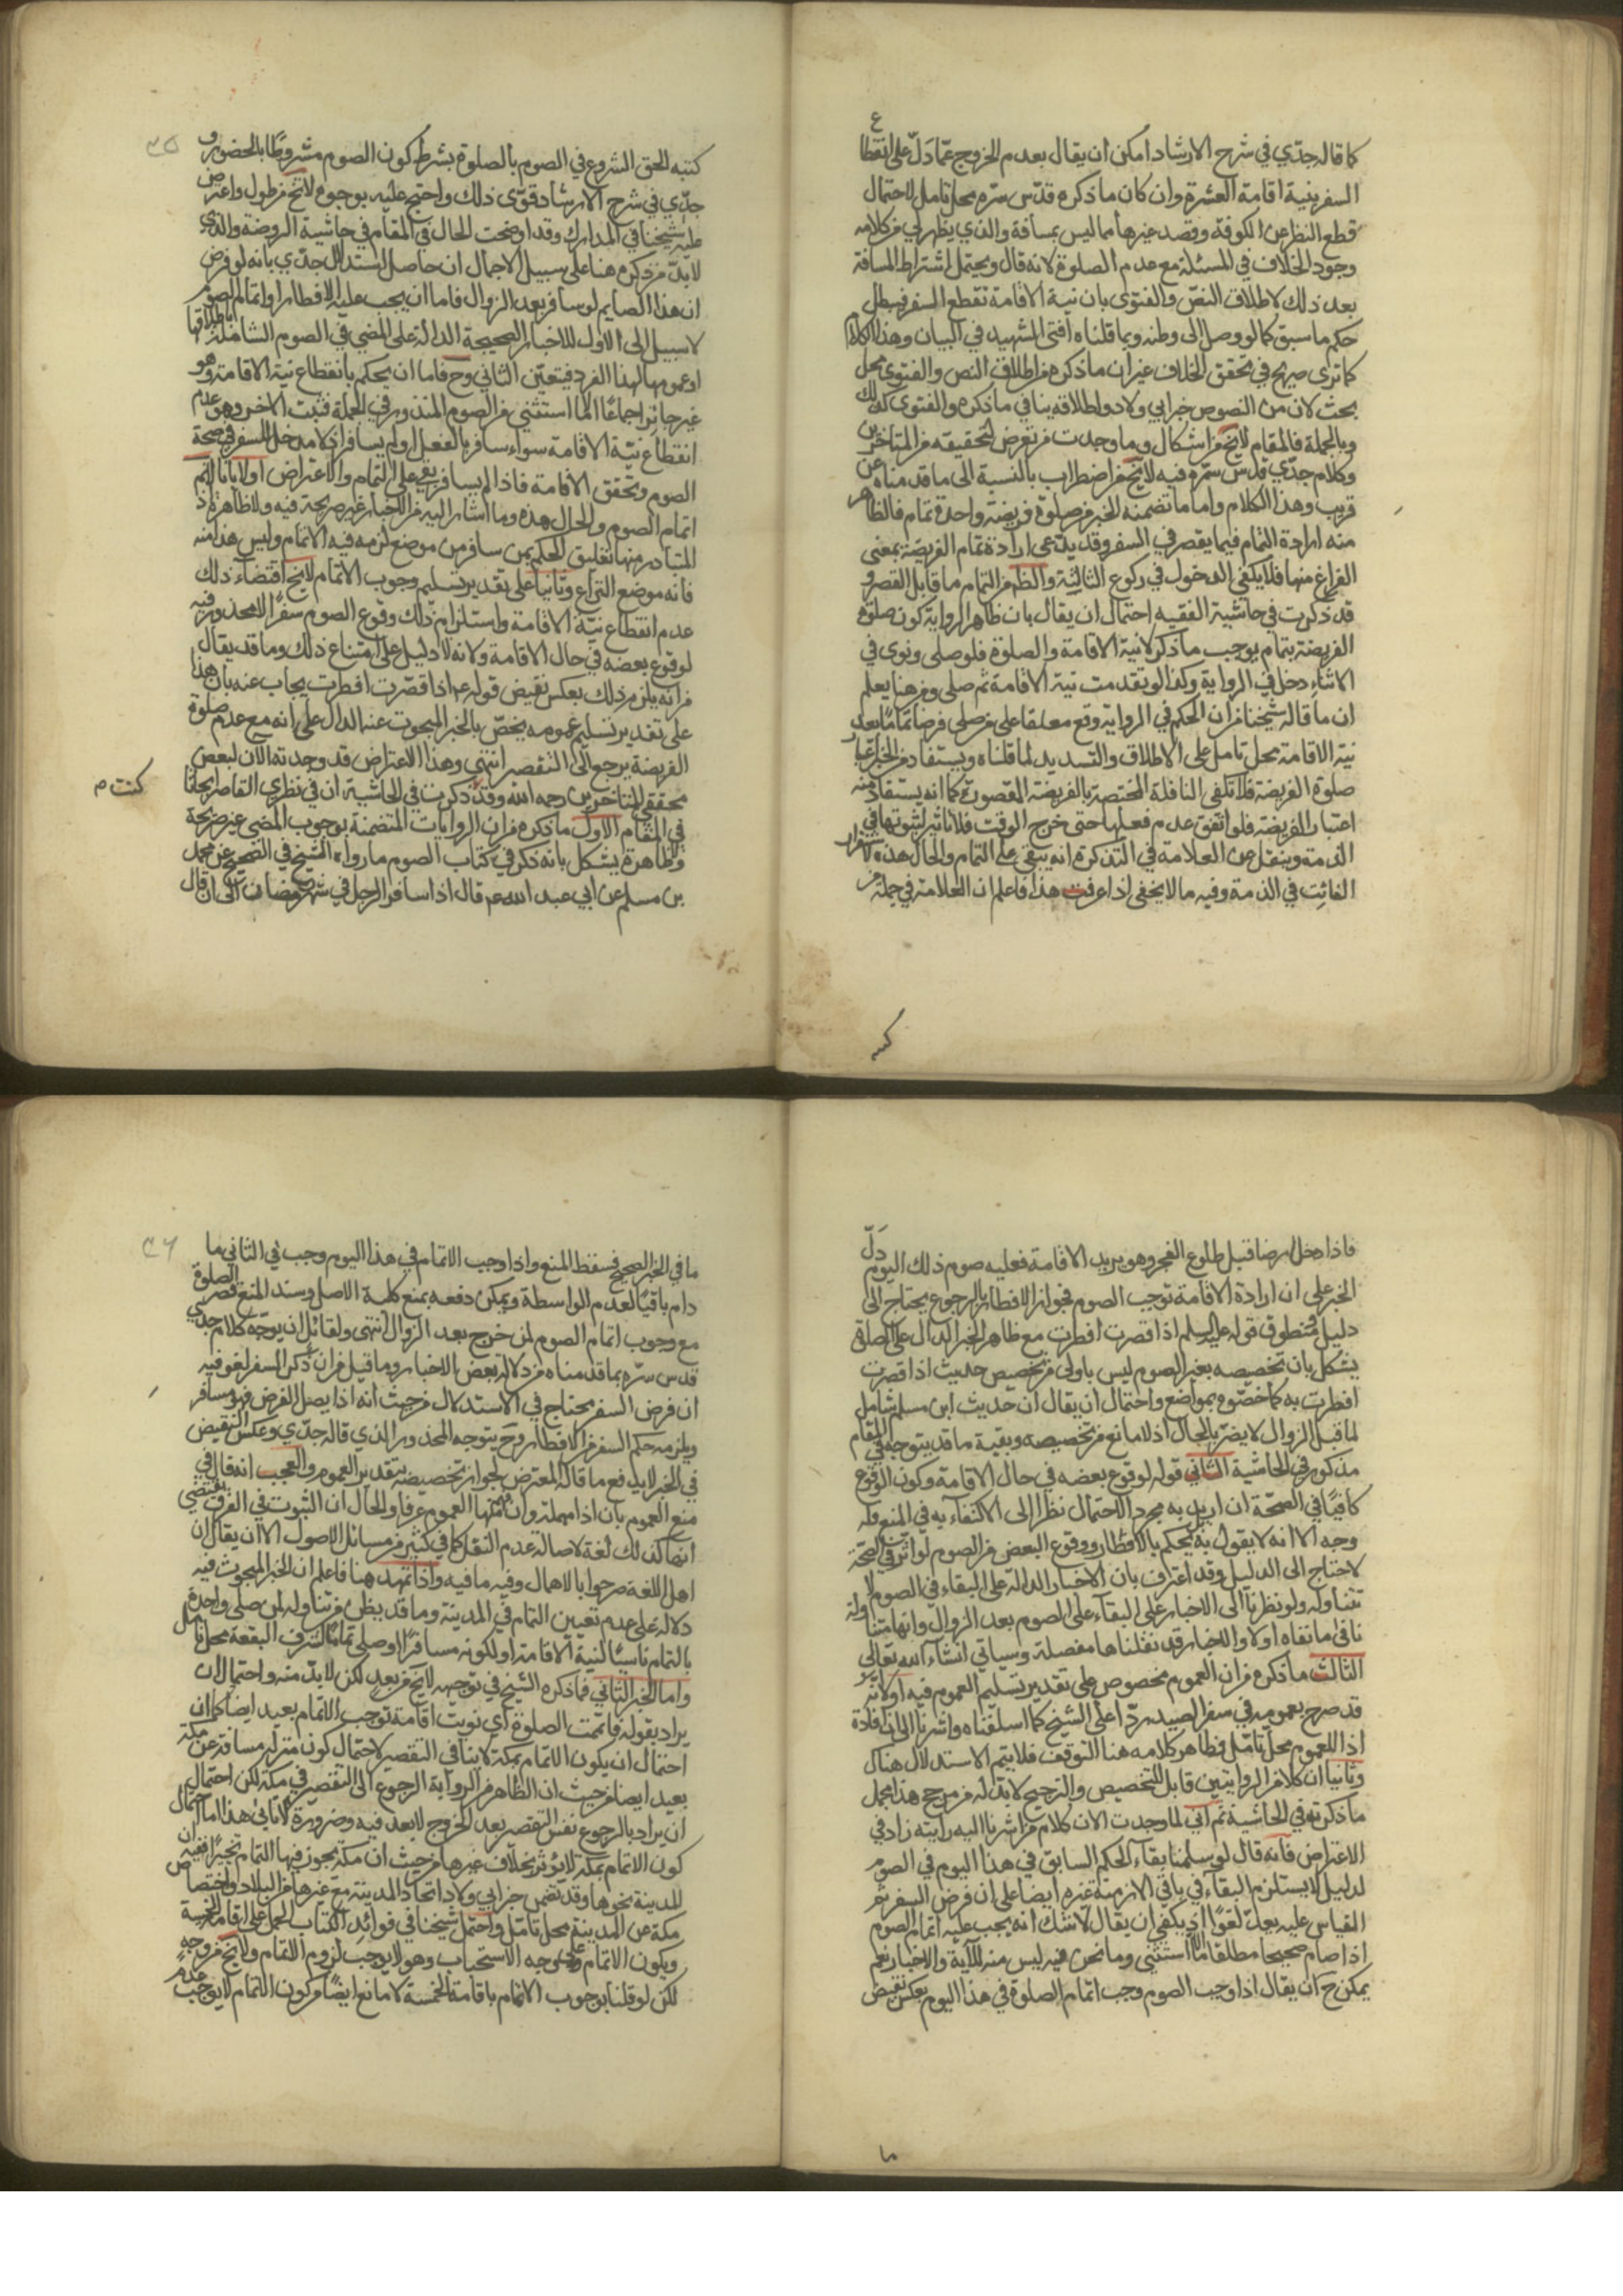 كما قاله جدّي في شرح الارشاد امكن ان يقال بعدم الخروج عمّا دلّ على انقطا
ع
السفر بنية اقامة العشرة وان كان ما ذكره قدّس سرّه محل تامل لاحتمال
قطع النظر عن الكوفة وقصد غيرها مما ليس بمسافة والذي يظهر لي من كلامه
وجود الخلاف في المسئلة مع عدم الصلوة لانه قال ويحتمل اشتراط المسافة
بعد ذلك لاطلاق النصّ والفتوى بان نية الاقامة تقطع السفر فيبطل
حكم ما سبق كما لو وصل الى وطنه وبما قلناه افتى الشهيد في البيان وهذا الكلام
كما ترى صريح في تحقق الخلاف غير ان ما ذكره من اطلاق النص والفتوى محل
بحث لان من النصوص خبر ابي ولاد واطلاقه ينافي ما ذكره والفتوى كذلك
وبالجملة فالمقام لا يخ من اشكال وما وجدت من تعرض لتحقيقه من المتاخرين
وكلام جدّي قدّس سرّه فيه لا يخ من اضطراب بالنسبة الى ما قدمناه عن
قريب وهذا الكلام واما ما تضمنه الخبر من صلوة فريضة واحدة تمام فالظاهر
منه ارادة التمام فيما يقصر في السفر وقد يدّعى ارادة تمام الفريضة بمعنى
الفراغ منها فلا يكفي الدخول في ركوع الثالثة والظ من التمام ما قابل القصر و
قد ذكرت في حاشية الفقيه احتمال ان يقال بان ظاهر الرواية كون صلوة
الفريضة بتمام يوجب ما ذكر لا نية الاقامة والصلوة فلو صلى ونوى في
الاثناء دخل في الرواية وكذا لو تقدمت نية الاقامة ثم صلى ومن هنا يعلم
ان ما قاله شيخنا من ان الحكم في الرواية وقع معلقا على من صلى فرضا تماما بعد
نية الاقامة محل تامل على الاطلاق والتسديد لما قلناه ويستفاد من الخبر اعتبار
صلوة الفريضة فلا تكفي النافلة المختصة بالفريضة المقصورة كما انه يستفاد منه
اعتبار الفريضة فلو اتفق عدم فعلها حتى خرج الوقت فلا تاثير لثبوتها في
الذمة وينقل عن العلامة في التذكرة انه يبقى على التمام والحال هذه لاستقرار
الفائت في الذمة وفيه ما لا يخفى اذا عرفت هذا فاعلم ان العلامة في جملة من
كتبه
٣٥
كتبه الحق الشروع في الصوم بالصلوة بشرط كون الصوم مشروطا بالحضور و
جدّي في شرح الارشاد قوّى ذلك واحتج عليه بوجوه لا تخ من طول واعترض
عليه شيخنا في المدارك وقد اوضحت الحال في المقام في حاشية الروضة والذي
لا بدّ من ذكره هنا على سبيل الاجمال ان حاصل استدلال جدّي بانه لو فرض
ان هذا الصايم لو سافر بعد الزوال فاما ان يجب عليه الافطار او اتمام الصوم
لا سبيل الى الاول للاخبار الصحيحة الدالة على المضي في الصوم الشاملة باطلاقها
او عمومها لهذا الفرد فيتعيّن الثاني وح فاما ان يحكم بانقطاع نية الاقامة وهو
غير جائز اجماعا الا ما استثني من الصوم المنذور في الجملة فثبت الاخر وهو عدم
انقطاع نيّة الاقامة سواء سافر بالفعل او لم يسافر اذ لا مدخل للسفر في صحة
الصوم وتحقق الاقامة فاذا لم يسافر بقي على التمام والاعتراض اولا بانا لا نم
اتمام الصوم والحال هذه وما اشار اليه من الاخبار غير صريحة فيه ولا ظاهرة اذ
المتبادر منها تعليق الحكم بمن سافر من موضع لزمه فيه الاتمام وليس هذا منه
فانه موضع النزاع وثانيا على تقدير تسليم وجوب الاتمام لا نم اقتضاء ذلك
عدم انقطاع نيّة الاقامة واستلزام ذلك وقوع الصوم سفرا لا محذور فيه
لوقوع بعضه في حال الاقامة ولانه لا دليل على امتناع ذلك وما قد يقال
من انه يلزم ذلك بعكس نقيض قوله ع اذا قصّرت افطرت يجاب عنه بان هذا
على تقدير تسليم عمومه يخصّ بالخبر المبحوث عنه الدال على انه مع عدم صلوة
الفريضة يرجع الى التقصير انتهى وهذا الاعتراض قد وجدته الآن لبعض
محققي المتاخرين رحمه الله وقد ذكرت في الحاشية ان في نظري القاصر ابحاثا
كنت م
في المقام الاول ما ذكره من ان الروايات المتضمنة بوجوب المضي غير صريحة
ولا ظاهرة يشكل بانه ذكر في كتاب الصوم ما رواه الشيخ في الصحيح عن محمد
بن مسلم عن ابي عبد الله ع قال اذا سافر الرجل في شهر رمضان الى ان قال
فاذا دخل ارضا قبل طلوع الفجر وهو يريد الاقامة فعليه صوم ذلك اليوم
دلّ
الخبر على ان ارادة الاقامة توجب الصوم فجواز الافطار بالرجوع يحتاج الى
دليل فمنطوق قوله عليه السلم اذا قصرت افطرت مع ظاهر الخبر الدال على اطلاق
يشكل بان تخصيصه بغير الصوم ليس باولى من تخصيص حديث اذا قصرت
افطرت به كما خصّوه بمواضع واحتمال ان يقال ان حديث ابن مسلم شامل
لما قبل الزوال لا يضرّ بالحال اذ لا مانع من تخصيصه وبقية ما قد يتوجه في المقام
مذكور في الحاشية الثاني قوله لوقوع بعضه في حال الاقامة وكون الوقوع
كافيا في الصحّة ان اريد به مجرد الاحتمال نظرا الى الاكتفاء به في المنع فله
وجه الا انه لا يقول به يحكم بالافطار ووقوع البعض من الصوم لو اثّر في الصحّة
لاحتاج الى الدليل وقد اعترف بان الاخبار الدالة على البقاء في الصوم لا
تتناوله ولو نظرنا الى الاخبار على البقاء على الصوم بعد الزوال وانها متناولة
نافى ما نفاه اولا والاخبار قد نقلناها مفصلة وسياتي انشاء الله تعالى
الثالث ما ذكره من ان العموم مخصوص على تقدير تسليم العموم فيه اولا انه
قد صرح بعمومه في سفر الصيد ردّا على الشيخ كما اسلفناه واشرنا الى ان افادة
اذا للعموم محل تامّل فظاهر كلامه هنا التوقف فلا يتم الاستدلال هناك
وثانيا ان كلا من الروايتين قابل للتخصيص والترجيح لا بدّ له من مرجح هذا مجمل
ما ذكرته في الحاشية ثم اني لما وجدت الان كلام من اشرنا اليه رايته زاد في
الاعتراض فانه قال لو سلمنا بقاء الحكم السابق في هذا اليوم في الصوم
لدليل لا يستلزم البقاء في باقي الازمنة غيره ايضا على ان فرض السفر ثم
القياس عليه يعدّ لغوا اذ يكفي ان يقال لا شك انه يجب عليه اتمام الصوم
اذا صام صحيحا مطلقا الا ما استثنى وما نحن فيه ليس منه للآية والاخبار نعم
يمكن ح ان يقال اذا وجب الصوم وجب اتمام الصلوة في هذا اليوم بعكس نقيض
ما
٣٦
ما في الخبر الصحيح فسقط المنع واذا وجب الاتمام في هذا اليوم وجب في الثاني ما
دام باقيا لعدم الواسطة ويمكن دفعه بمنع كلية الاصل وسند المنع قصر الصلوة
مع وجوب اتمام الصوم لمن خرج بعد الزوال انتهى ولقائل ان يوجّه كلام جدي
قدس سرّه بما قدمناه من دلالة بعض الاخبار وما قيل من ان ذكر السفر لغو فيه
ان فرض السفر يحتاج في الاستدلال من حيث انه اذا يصل الفرض فهو مسافر
ويلزمه حكم السفر من الافطار وح يتوجه المحذور الذي قاله جدّي وعكس النقيض
في الخبر لا يدفع ما قاله المعترض لجواز تخصيصه بتقدير العموم والعجب انه قال في
منع العموم بان اذا مهملة وان فهم منها العموم عرفا والحال ان الثبوت في العرف يقتضي
انها كذلك لغة لاصالة عدم النقل كما في كثير من مسائل الاصول الا ان يقال ان
اهل اللغة صرحوا بالاهمال وفيه ما فيه واذا تمهد هنا فاعلم ان الخبر المبحوث فيه
دلالة على عدم تعيين التمام في المدينة وما قد يظن من تناوله لمن صلى واحدة
بالتمام ناسيا لنية الاقامة او لكونه مسافرا او صلى تماما لشرف البقعة محل تامل
واما الخبر الثاني فما ذكره الشيخ في توجيهه لا يخ من بعد لكن لا بدّ منه واحتمال ان
يراد بقوله فاتممت الصلوة اي نويت اقامة توجب الاتمام بعيد ايضا كما ان
احتمال ان يكون الاتمام بمكة لا ينافي التقصير لاحتمال كون منزله مسافة عن مكة
بعيد ايضا من حيث ان الظاهر من الرواية الرجوع الى التقصير في مكة لكن احتمال
ان يراد بالرجوع نفس التقصر بعد الخروج لا بعد فيه وضرورة لا تابى هذا اما احتمال
كون الاتمام بمكة لا يؤثر بخلاف غيرها من حيث ان مكة يجوز فيها التمام تخييرا ففيه ان
للمدينة نحوها وقد تضمن خبر ابي ولاد اتحاد المدينة مع غيرها من البلاد واختصاص
مكة عن المدينة محل تامّل واحتمل شيخنا في فوائد الكتاب الحمل على اقامة الخمسة
ويكون الاتمام على وجه الاستحباب وهو لا يوجب لزوم الاتمام ولا يخ من وجه
لكن لو قلنا بوجوب الاتمام باقامة الخمسة لا مانع ايضا من كون التمام لا يوجب عدم